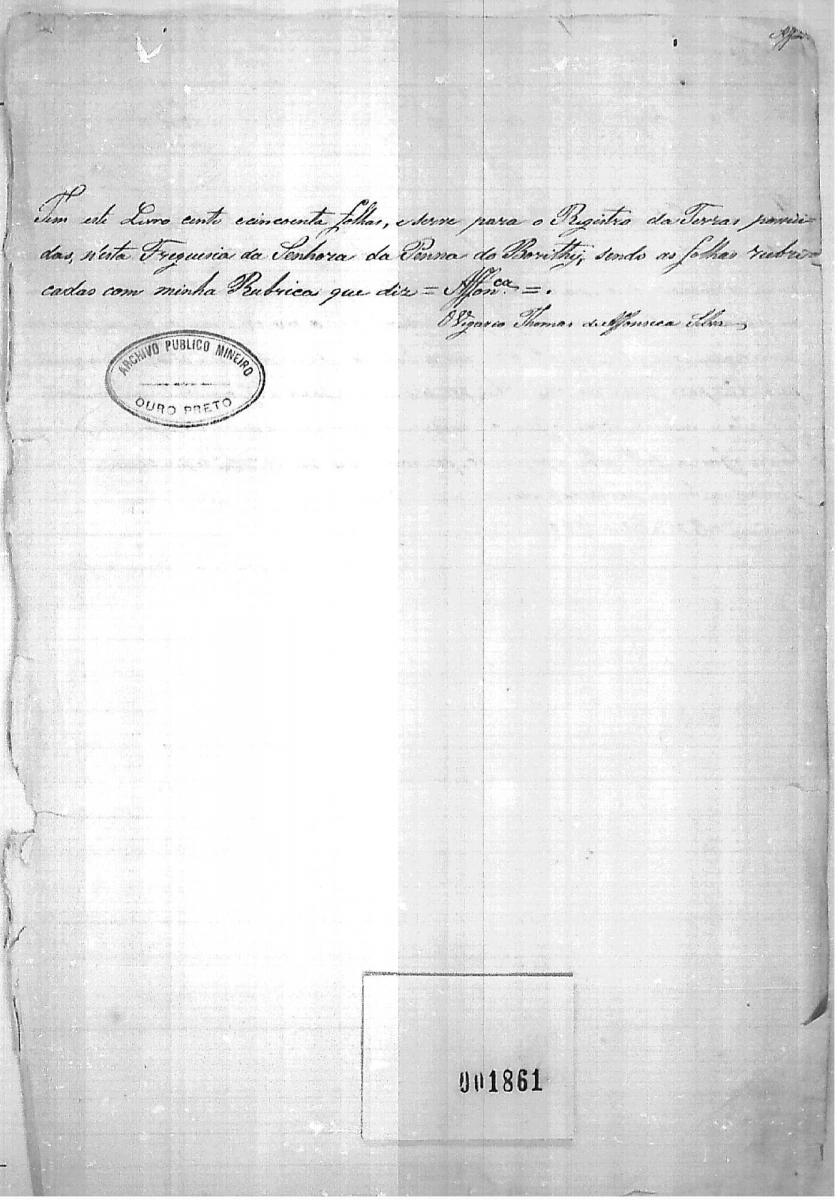 Tem este Livro cento ecincoenta folhas, eserve para o Registro da Terras possui-
das, n'esta Freguesia da Senhora da Penna do Borithy, sendo as folhas rubri-
cadas com minha Rubrica que diz = Affon.ca =.
O Vigario Thomas da Affonseca Silva
ARCHIVO PUBLICO MINEIRO
OURO PRETO
001861